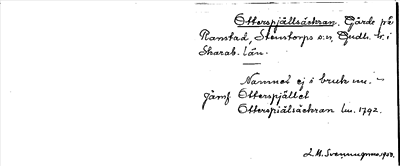 Otterspjällsåckran. Gärde på
Ranstad, Stenstorps s:n, Gudh. hr. i
Skarab. län.
Namnet ej i bruk nu.
Jämf Otterspjället
Otterspiälsåckran Lm. 1792.
L. M. Svenungsson 1930.